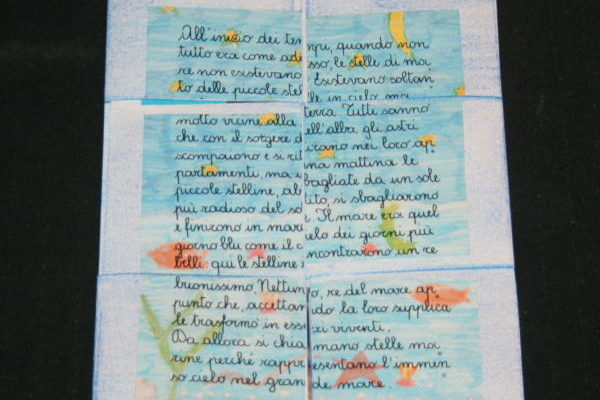 All'inizio dei tempi, quando non
tutto era come adesso, le stelle di ma
re non esistevano. Esistevano soltan
to delle piccole stelle in cielo ma
molto vicine alla terra. Tutti sanno
che con il sorgere dell'alba gli astri
scompaiono e si ritirano nei loro ap
partamenti, ma una mattina le
piccole stelline, abbagliate da un sole
più radioso del solito, si sbagliarono
e finirono in mare. Il mare era quel
giorno blu come il cielo dei giorni più
belli: qui le stelline incontrarono un re
buonissimo, Nettuno, re del mare ap
punto che, accettando la loro supplica
le trasformò in esseri viventi.
Da allora si chiamano stelle ma
rine perché rappresentano l'immen
so cielo nel grande mare